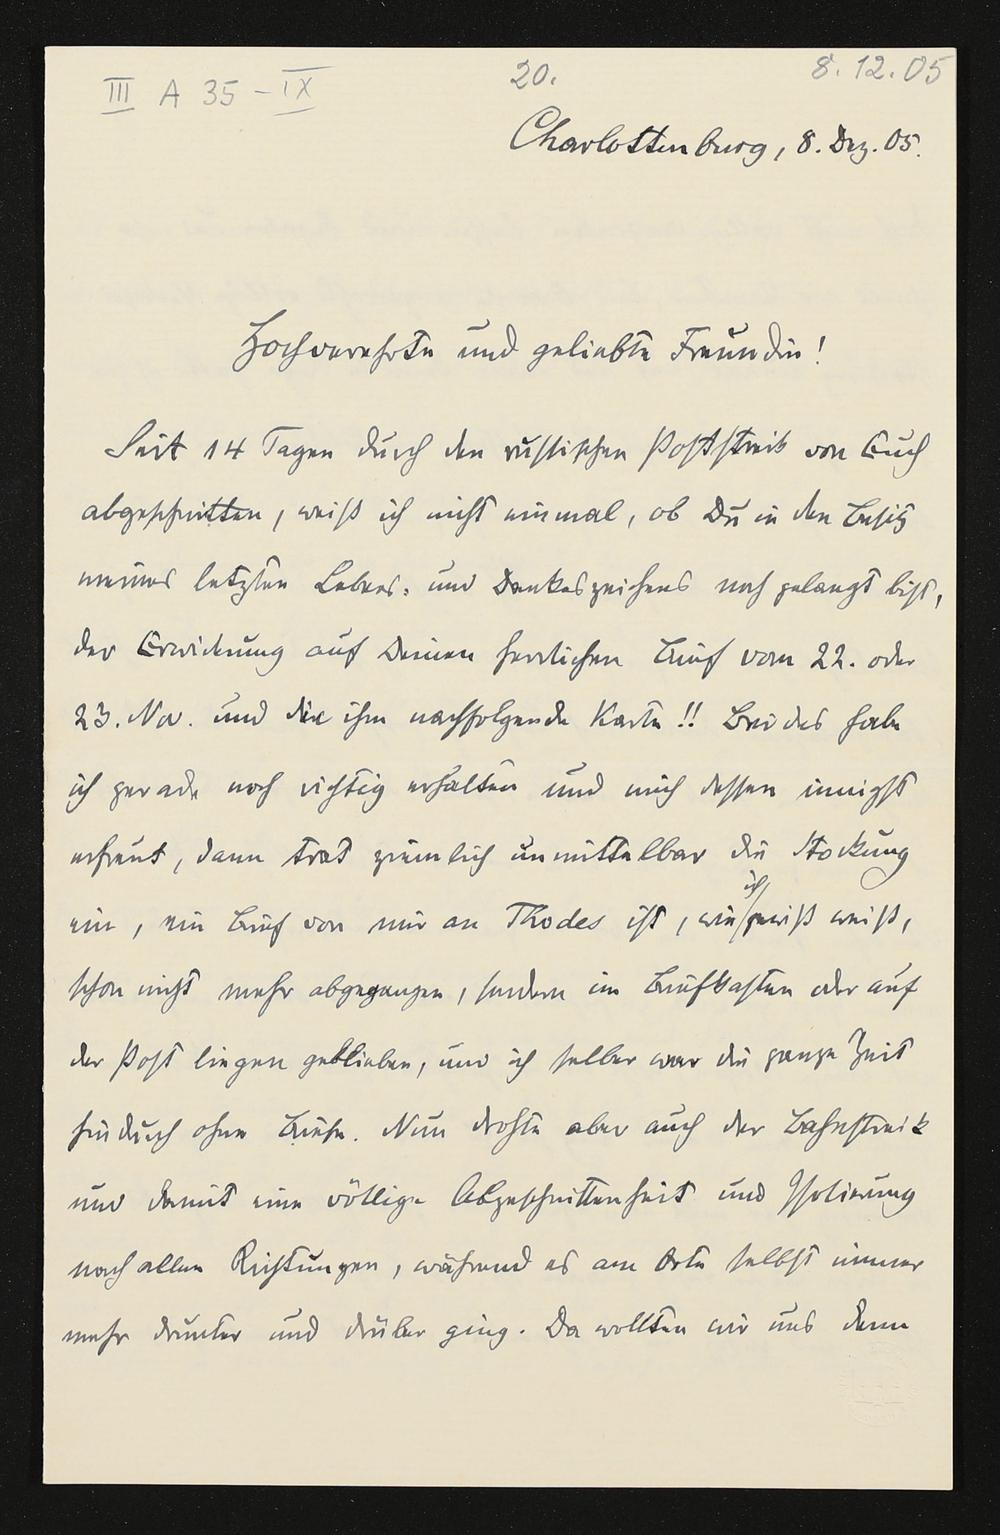 III A 35 - IX
20.
8.12.05
Charlottenburg, 8. Dez. 05.
Hochverehrte und geliebte Freundin!
Seit 14 Tagen durch den russischen Poststreik von Euch
abgeschnitten, weiß ich nicht einmal, ob Du in den Besitz
meines letzten Lebens- und Dankeszeichens noch gelangt bist,
der Erwiderung auf Deinen herrlichen Brief vom 22. oder
23. Nov. und die ihm nachfolgende Karte!! Beides habe
ich gerade noch richtig erhalten und mich dessen innigst
erfreut, dann trat ziemlich unmittelbar die Stockung
ein, ein Brief von mir an Thodes ist, wie ich gewiß weiß,
schon nicht mehr abgegangen, sondern im Briefkasten oder auf
der Post liegen geblieben, und ich selber war die ganze Zeit
hindurch ohne Briefe. Nun drohte aber auch der Bahnstreik
und damit eine völlige Abgeschnittenheit und Isolierung
nach allen Richtungen, während es am Orte selbst immer
mehr drunter und drüber ging. Da wollten wir uns denn